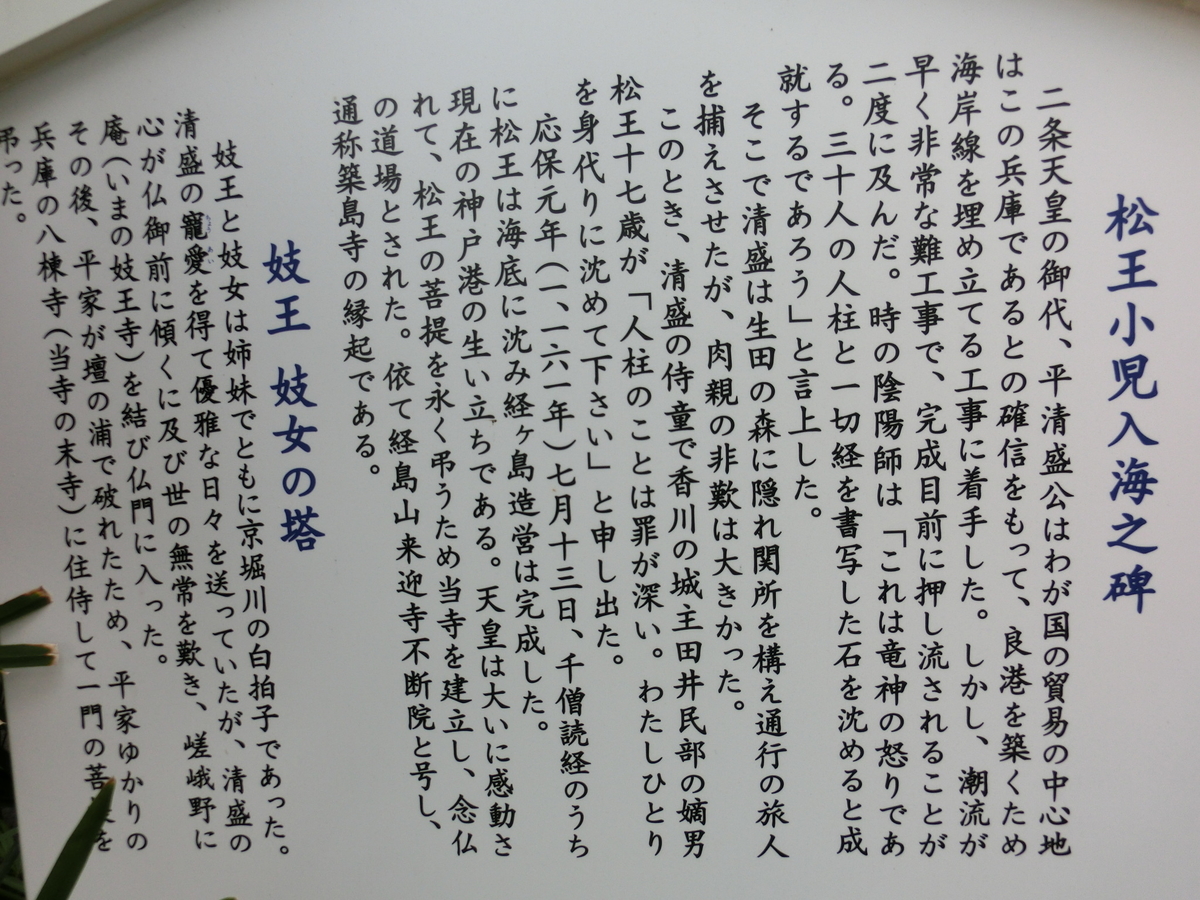 松王小児入海之碑
二条天皇の御代、平清盛公はわが国の貿易の中心地
はこの兵庫であるとの確信をもって、良港を築くため
海岸線を埋め立てる工事に着手した。しかし、潮流が
早く非常な難工事で、完成目前に押し流されることが
二度に及んだ。時の陰陽師は「これは竜神の怒りであ
る。三十人の人柱と一切経を書写した石を沈めると成
就するであろう」と言上した。
そこで清盛は生田の森に隠れ関所を構え通行の旅人
を捕えさせたが、肉親の非歎は大きかった。
このとき、清盛の侍童で香川の城主田井民部の嫡男
松王十七歳が「人柱のことは罪が深い。わたしひとり
を身代りに沈めて下さい」と申し出た。
応保元年(一、一六一年)七月十三日、千僧読経のうち
に松王は海底に沈み経ヶ島造営は完成した。
現在の神戸港の生い立ちである。天皇は大いに感動さ
れて、松王の菩提を永く弔うため当寺を建立し、念仏
の道場とされた。依て経島山来迎寺不断院と号し、
通称築島寺の縁起である。
妓王 妓女の塔
妓王と妓女は姉妹でともに京堀川の白拍子であった。
清盛の寵愛を得て優雅な日々を送っていたが、清盛の
心が仏御前に傾くに及び世の無常を歎き、嵯峨野に
庵(いまの妓王寺)を結び仏門に入った。
その後、平家が壇の浦で破れたため、平家ゆかりの
兵庫の八棟寺(当寺の末寺)に住侍して一門の菩を
弔った。